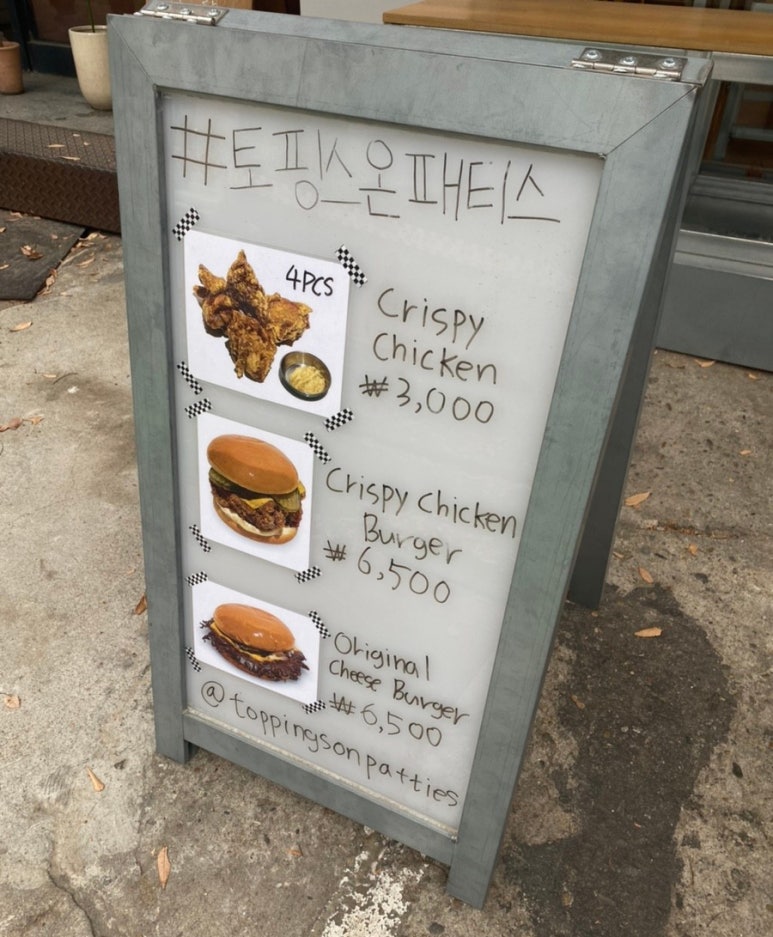 #토핑스온패티스
4PCS
Crispy
Chicken
₩3,000
Crispy Chicken
Burger
₩6,500
Original
Cheese Burger
₩6,500
@toppingsonpatties